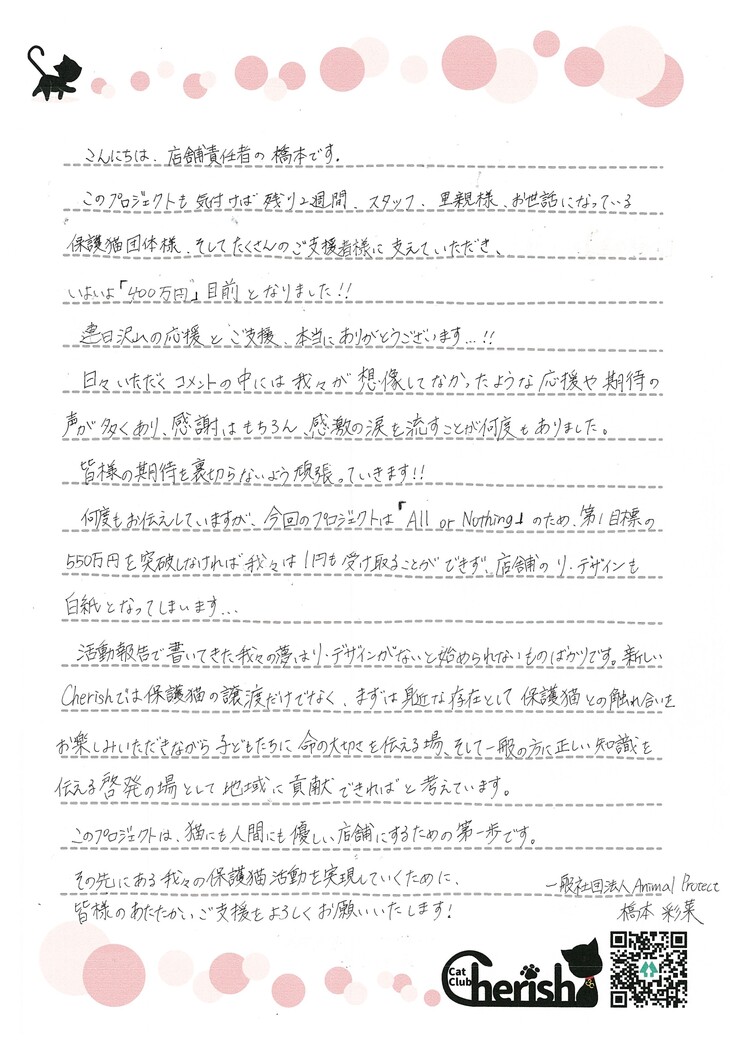 こんにちは、店舗責任者の橋本です。
このプロジェクトも気付けば残り2週間、スタッフ、里親様、お世話になっている
保護猫団体様、そしてたくさんのご支援者様に支えていただき、
いよいよ「400万円」目前となりました!!
連日沢山の応援とご支援、本当にありがとうございます…!!
日々いただくコメントの中には我々が想像してなかったような応援や期待の
声が多くあり、感謝はもちろん、感激の涙を流すことが何度もありました。
皆様の期待を裏切らないよう頑張っていきます!!
何度もお伝えしていますが、今回のプロジェクトは「All or Nothing」のため、第1目標の
550万円を突破しなければ我々は1円も受け取ることができず、店舗のリ・デザインも
白紙となってしまいます…
活動報告で書いてきた我々の夢はリ・デザインがないと始められないものばかりです。新しい
Cherishでは保護猫の譲渡だけでなく、まずは身近な存在として保護猫との触れ合いを
お楽しみいただきながら子どもたちに命の大切さを伝える場、そして一般の方に正しい知識を
伝える啓発の場として地域に貢献できればと考えています。
このプロジェクトは、猫にも人間にも優しい店舗にするための第一歩です。
その先にある我々の保護猫活動を実現していくために、
皆様のあたたかいご支援をよろしくお願いいたします!
一般社団法人Animal Protect
橋本 彩菜
Cat Club Cherish